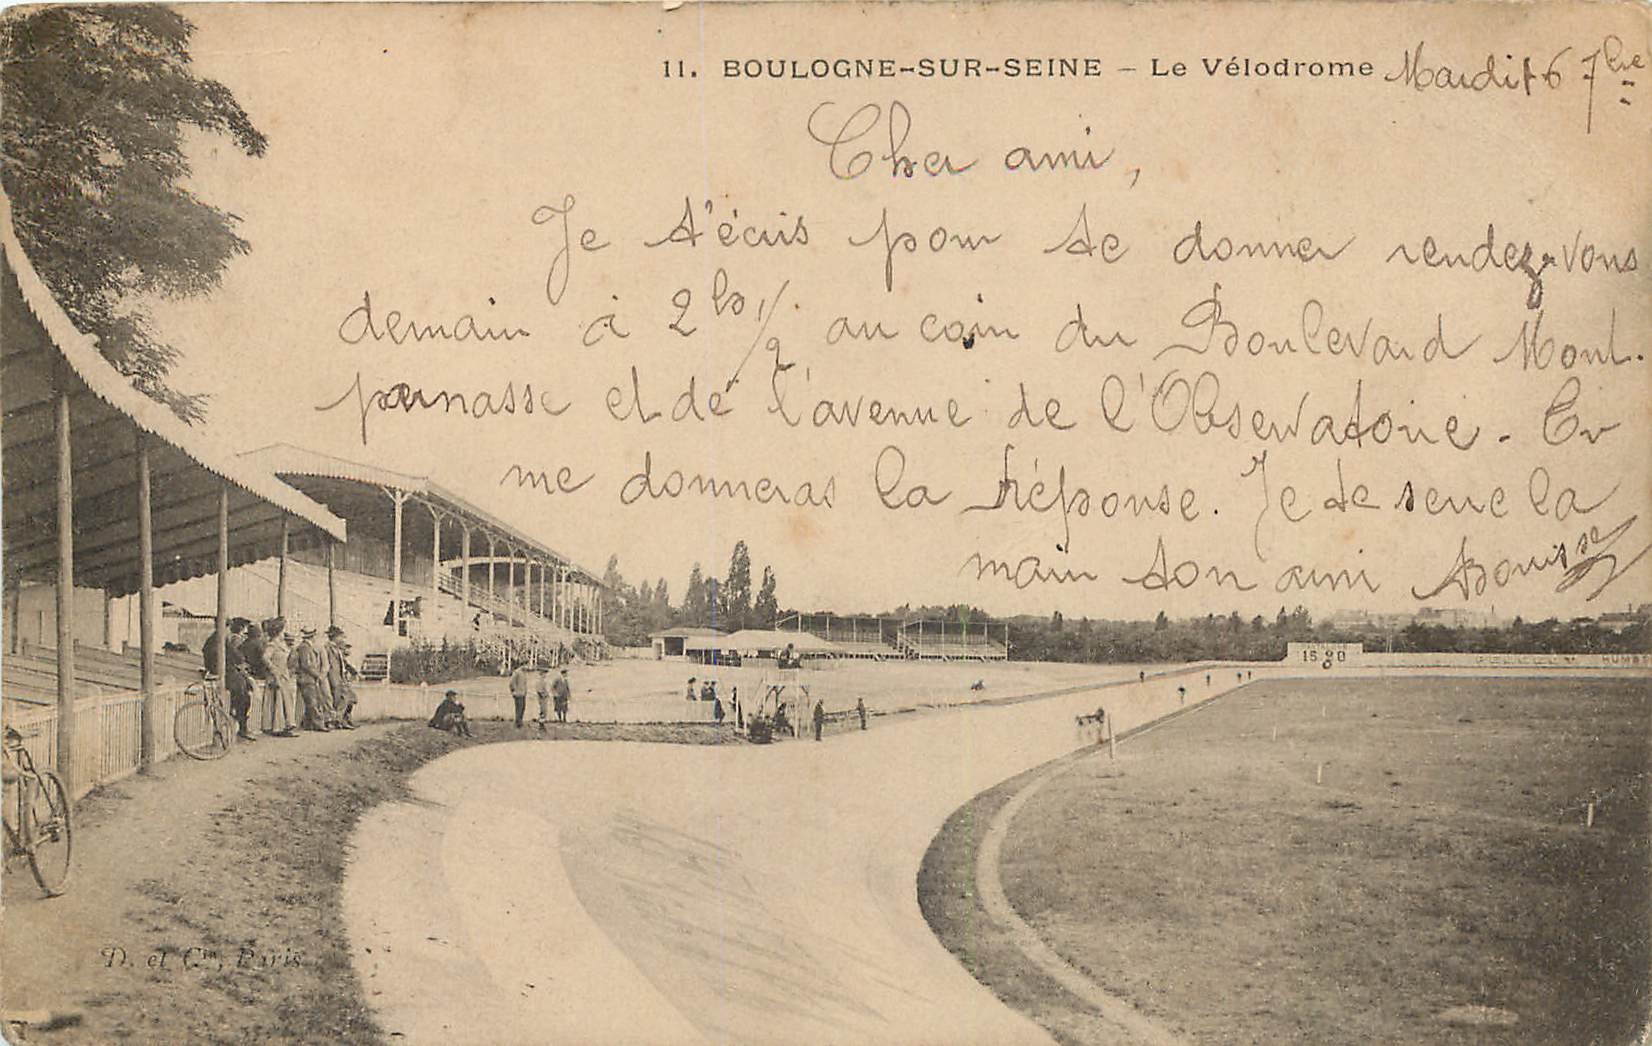 11. BOULOGNE-SUR-SEINE – Le Vélodrome Mardi 6 7bre
Cher ami,
Je t'écris pour te donner rendez-vous
demain à 2 h 1/2 au coin du Boulevard Mont-
parnasse et de l'avenue de l'Observatoire. Tu
me donneras la réponse. Je te serre la
main ton ami
1580
D. et Cie, Paris